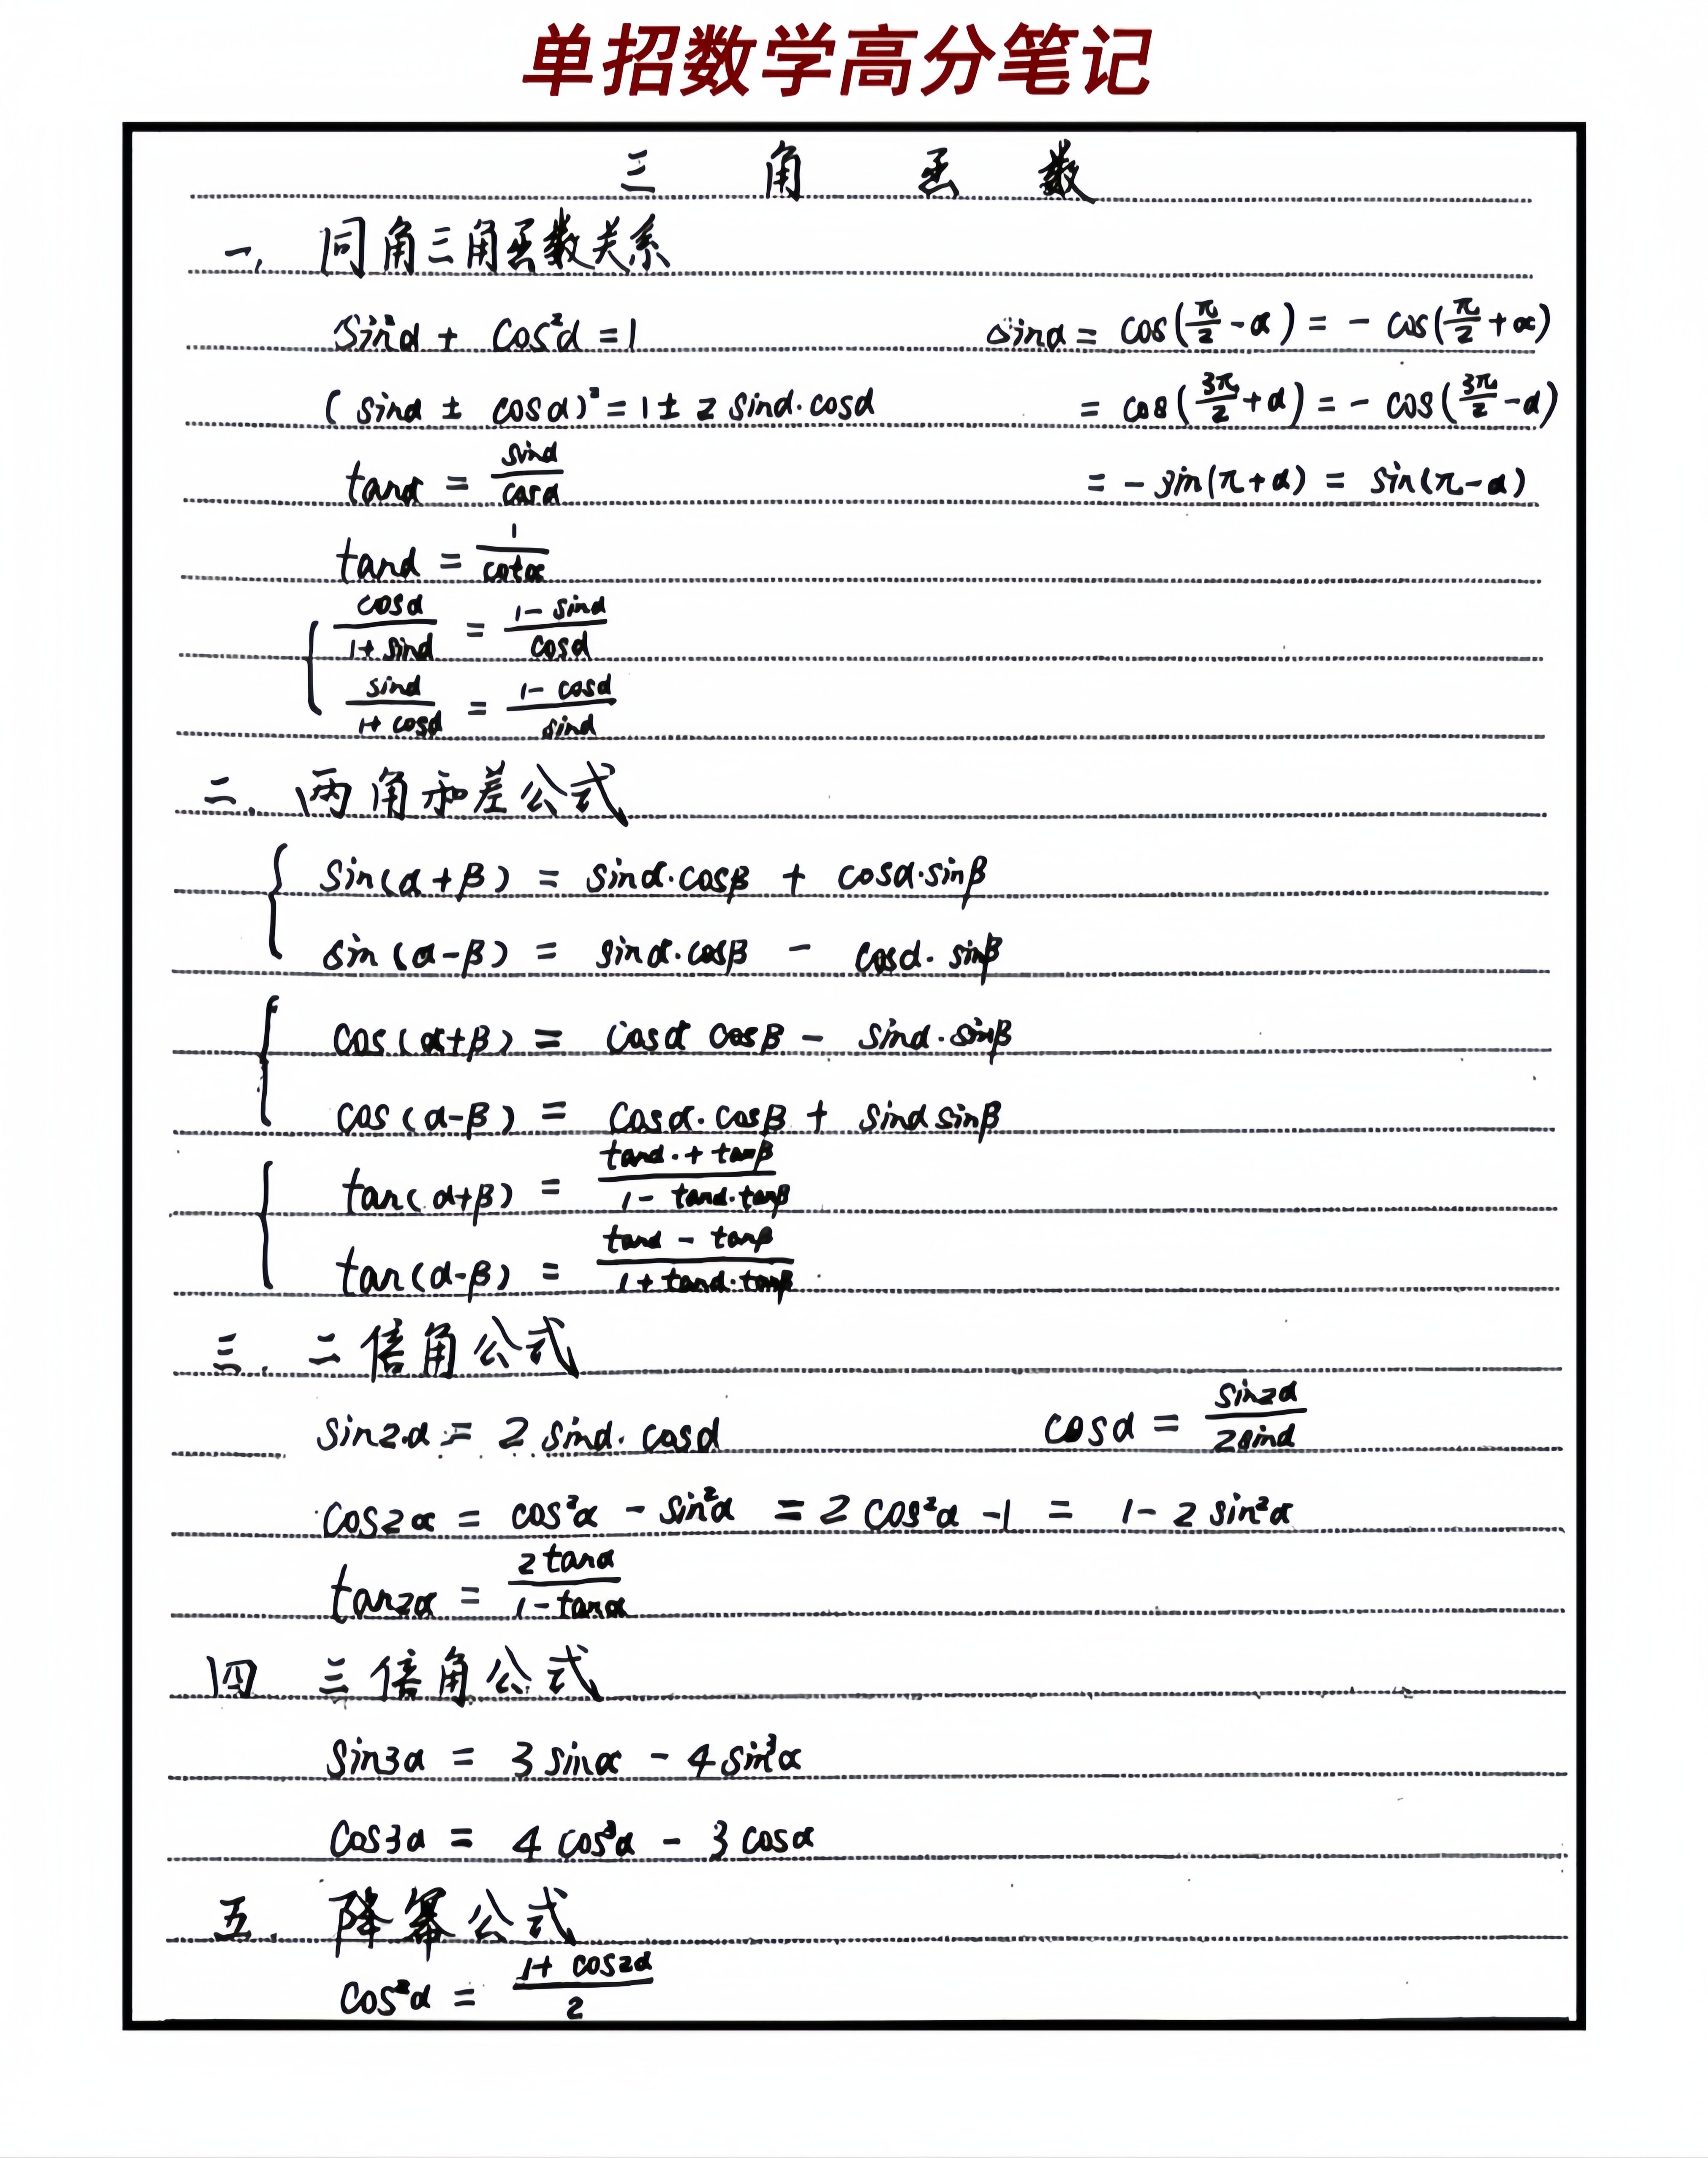 单招数学高分笔记
三角函数
一、同角三角函数关系
sin²α + cos²α = 1
sinα = cos(π/2 - α) = - cos(π/2 + α)
(sinα ± cosα)² = 1 ± 2 sinα·cosα
= cos(3π/2 + α) = - cos(3π/2 - α)
tanα = sinα/cosα
= - sin(π + α) = sin(π - α)
tanα = 1/cotα
{ cosα/(1 + sinα) = (1 - sinα)/cosα
sinα/(1 + cosα) = (1 - cosα)/sinα
二、两角和差公式
{ sin(α + β) = sinα·cosβ + cosα·sinβ
sin(α - β) = sinα·cosβ - cosα·sinβ
{ cos(α + β) = cosα cosβ - sinα·sinβ
cos(α - β) = cosα·cosβ + sinα sinβ
{ tan(α + β) = (tanα·+ tanβ)/(1 - tanα·tanβ)
tan(α - β) = (tanα - tanβ)/(1 + tanα·tanβ)
三、二倍角公式
sin2α = 2 sinα·cosα
cosα = sin2α/2sinα
cos2α = cos²α - sin²α = 2 cos²α - 1 = 1 - 2 sin²α
tan2α = 2tanα/(1 - tanα)
四 三倍角公式
sin3α = 3 sinα - 4 sin³α
cos3α = 4 cos³α - 3 cosα
五. 降幂公式
cos²α = (1 + cos2α)/2